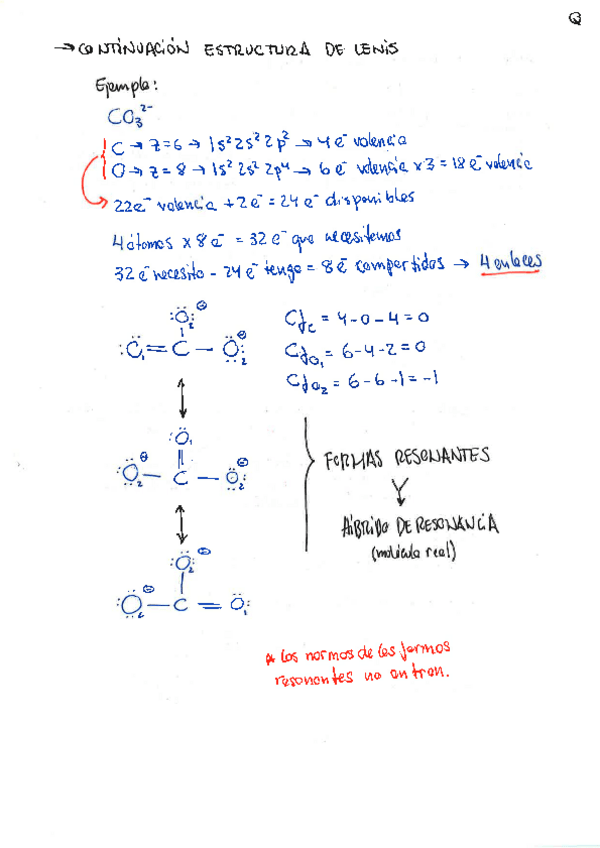 Q
→ CONTINUACIÓN ESTRUCTURA DE LEWIS
Ejemplo:
CO₃²⁻
C → Z=6 → 1s² 2s² 2p² → 4e⁻ valencia
O → Z=8 → 1s² 2s² 2p⁴ → 6e⁻ valencia x3 = 18e⁻ valencia
22e⁻ valencia + 2e⁻ = 24e⁻ disponibles
4 átomos x 8e⁻ = 32e⁻ que necesitamos
32e⁻ necesito - 24e⁻ tengo = 8e⁻ compartidos → 4 enlaces
:Ö₂: ⊖
:Ö₁ = C — Ö₂: ⊖
Cf_C = 4-0-4 = 0
Cf_O₁ = 6-4-2 = 0
Cf_O₂ = 6-6-1 = -1
↕
:Ö₁
:Ö₂ ⊖ — C — Ö₂: ⊖
↕
:Ö₂: ⊖
:Ö₂ ⊖ — C = Ö₁:
FORMAS RESONANTES
HÍBRIDO DE RESONANCIA
(molécula real)
* Las normas de las formas
resonantes no entran.